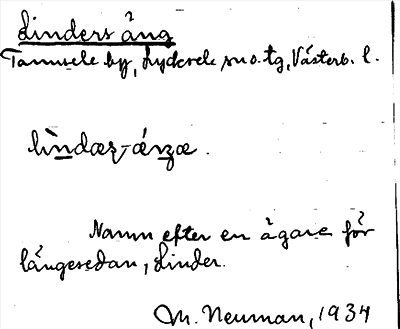 Linders äng
Tannsele by, Lycksele sn o. tg, Västerb. l.
lìndæʒ-áɲʒæ.
Namn efter en ägare för
längesedan, Linder.
M. Neuman, 1934